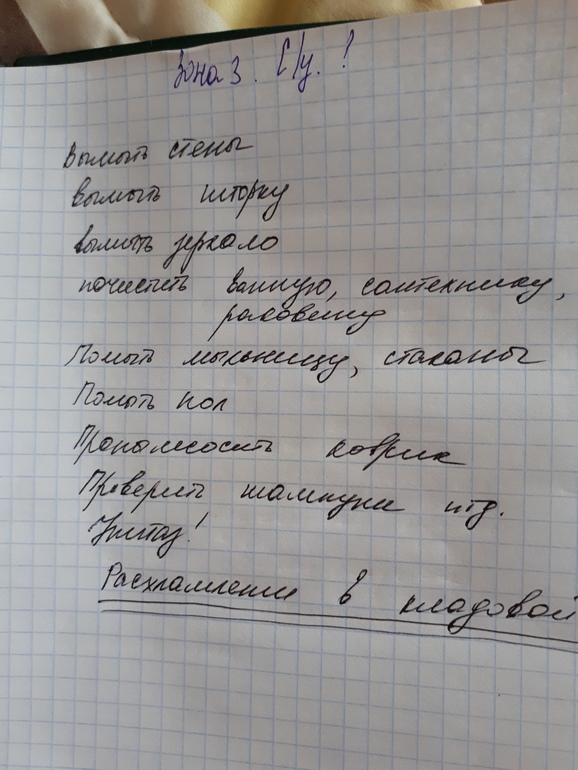 Зона 3. С/у. !
Вымыть стены
вымыть шторку
вымыть зеркало
почистить ванную, сантехнику,
раковину
Помыть мыльницу, стаканы
Помыть пол
Пропылесосить коврик
Проверить шампуни итд.
Унитаз!
Расхламление в кладовой